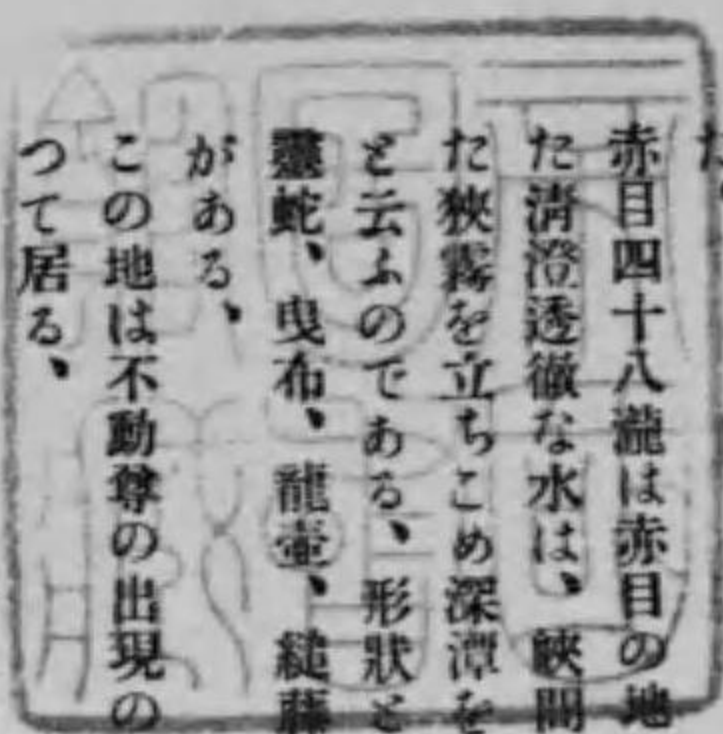 た
赤目四十八瀧は赤目の地
た清澄透徹な水は、峽間
た狹霧を立ちこめ深潭を
と云ふのである、形狀と
靈蛇、曳布、龍壺、縋藤
がある、
この地は不動尊の出現の
つて居る、